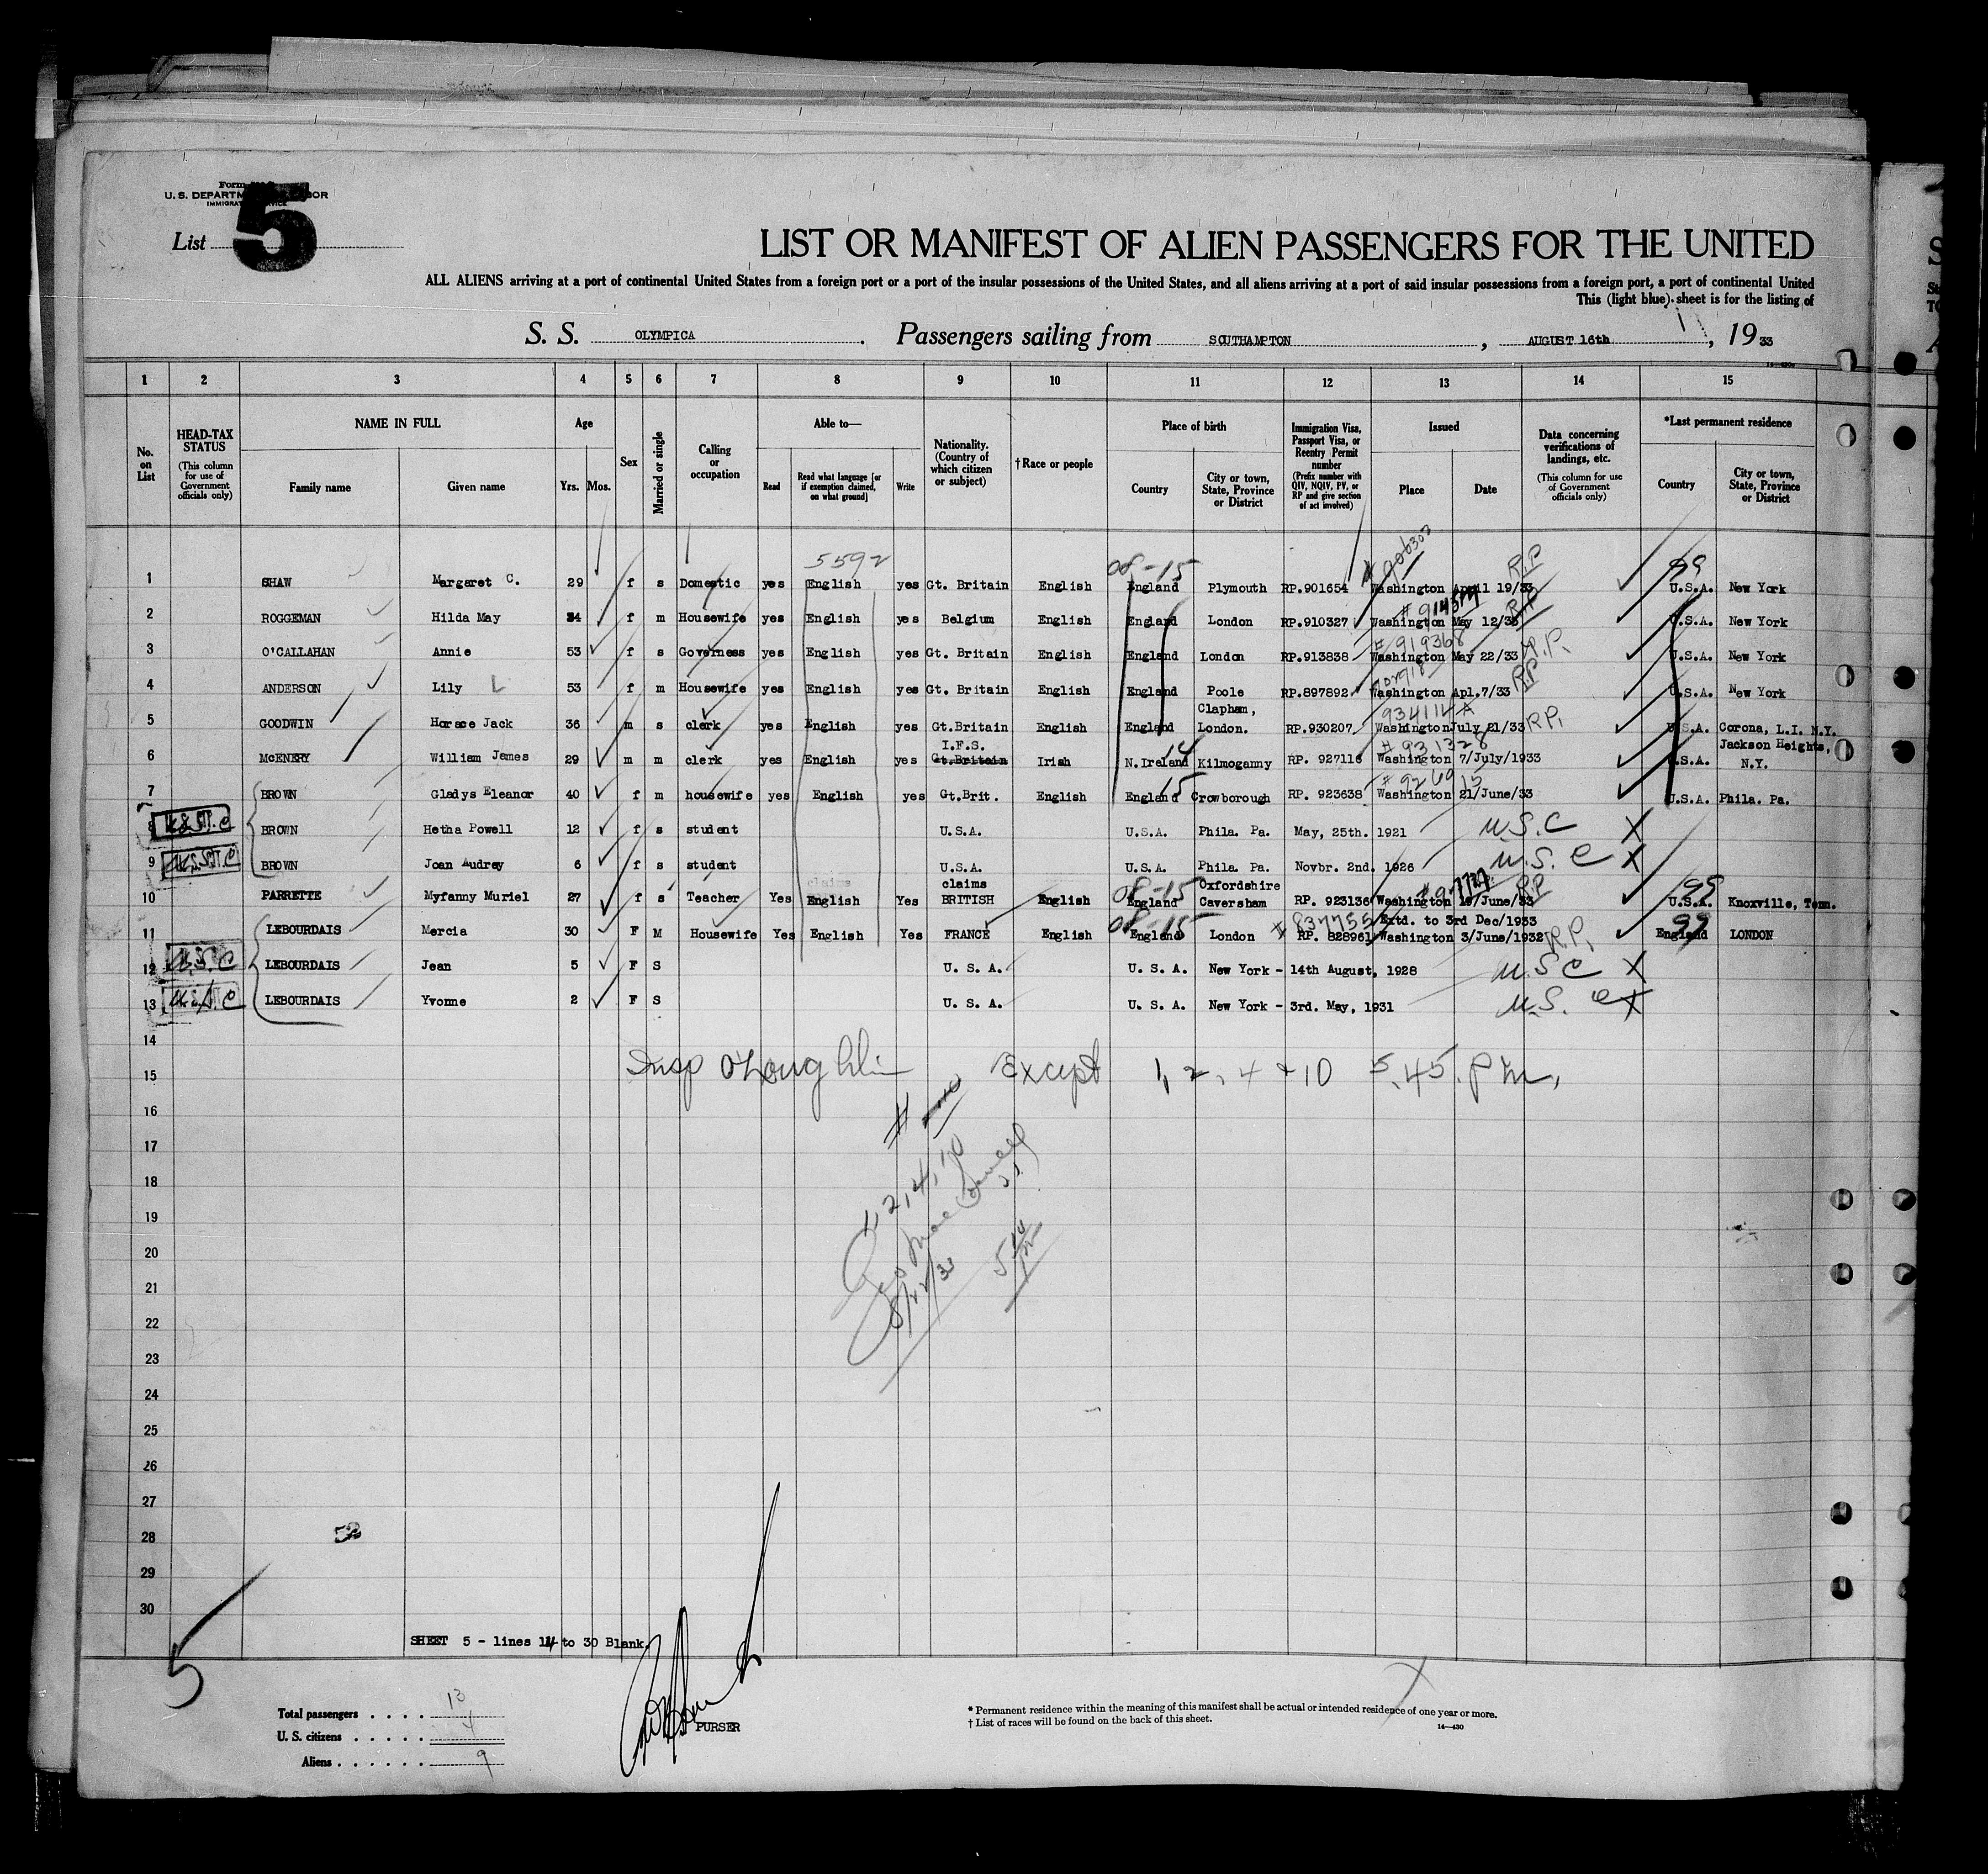 U. S. DEPARTM
List 5
LIST OR MANIFEST OF ALIEN PASSENGERS FOR THE UNITED
ALL ALIENS arriving at a port of continental United States from a foreign port or a port of the insular possessions of the United States, and all aliens arriving at a port of said insular possessions from a foreign port, a port of continental United
This (light blue) sheet is for the listing of
S. S. OLYMPICA. Passengers sailing from SOUTHAMPTON, AUGUST 16th, 1933
1 2 3 4 5 6 7 8 9 10 11 12 13 14 15
No. on List
HEAD-TAX STATUS (This column for use of Government officials only)
NAME IN FULL Family name Given name
Age Yrs. Mos.
Sex
Married or single
Calling or occupation
Able to— Read Read what language [or if exemption claimed, on what ground] Write
Nationality. (Country of which citizen or subject)
†Race or people
Place of birth Country City or town, State, Province or District
Immigration Visa, Passport Visa, or Reentry Permit number (Prefix number with QIV, NQIV, PV, or RP and give section of act involved)
Issued Place Date
Data concerning verifications of landings, etc. (This column for use of Government officials only)
*Last permanent residence Country City or town, State, Province or District
5592 08-15 99
1 SHAW Margaret C. 29 f s Domestic yes English yes Gt. Britain English England Plymouth RP.901654 Washington April 19/33 R.P U.S.A. New York
2 ROGGEMAN Hilda May 34 f m Housewife yes English yes Belgium English England London RP.910327 Washington May 12/33 R.P U.S.A. New York
# 919368
3 O'CALLAHAN Annie 53 f s Governess yes English yes Gt. Britain English England London RP.913838 Washington May 22/33 R.P. U.S.A. New York
4 ANDERSON Lily L 53 f m Housewife yes English yes Gt. Britain English England Poole RP.897892 Washington Apl.7/33 R.P U.S.A. New York
Clapham, 934112
5 GOODWIN Horace Jack 36 m s clerk yes English yes Gt.Britain English England London. RP.930207 Washington July 21/33 R.P. U.S.A. Corona, L.I. N.Y.
I.F.S. 14 # 931328 Jackson Heights,
6 McENERY William James 29 m m clerk yes English yes Gt.Britain Irish N.Ireland Kilmoganny RP. 927116 Washington 7/July/1933 U.S.A. N.Y.
15 # 926915
7 BROWN Gladys Eleanor 40 f m housewife yes English yes Gt.Brit. English England Crowborough RP. 923638 Washington 21/June/33 U.S.A. Phila. Pa.
8 BROWN Hetha Powell 12 f s student U.S.A. U.S.A. Phila. Pa. May, 25th. 1921 U.S.C X
9 BROWN Joan Audrey 6 f s student U.S.A. U.S.A. Phila. Pa. Novbr. 2nd. 1926 U.S.C X
claims 08-15 Oxfordshire 99
10 PARRETTE Myfanny Muriel 27 f s Teacher Yes English Yes BRITISH English England Caversham RP. 923136 Washington 19/June/33 R.P U.S.A. Knoxville, Tenn.
08-15 # 837755 Extd. to 3rd Dec/1933 99
11 LEBOURDAIS Mercia 30 F M Housewife Yes English Yes FRANCE English England London RP. 828961 Washington 3/June/1932 R.P. England LONDON
12 U.S.C LEBOURDAIS Jean 5 F S U. S. A. U. S. A. New York - 14th August, 1928 U.S C X
13 U.S.C LEBOURDAIS Yvonne 2 F S U. S. A. U. S. A. New York - 3rd. May, 1931 U.S. C X
14
15 Insp O'Loughlin Except 1, 2, 4 + 10 5.45. P M,
16
17
18 1, 2, 4, 10
19
20
21 8/22/33
22
23
24
25
26
27
28 52
29
30
SHEET 5 - lines 14 to 30 Blank.
5
Total passengers . . . . 13
U. S. citizens . . . . . 4
Aliens . . . . . . 9
PURSER
* Permanent residence within the meaning of this manifest shall be actual or intended residence of one year or more.
† List of races will be found on the back of this sheet.
14—430